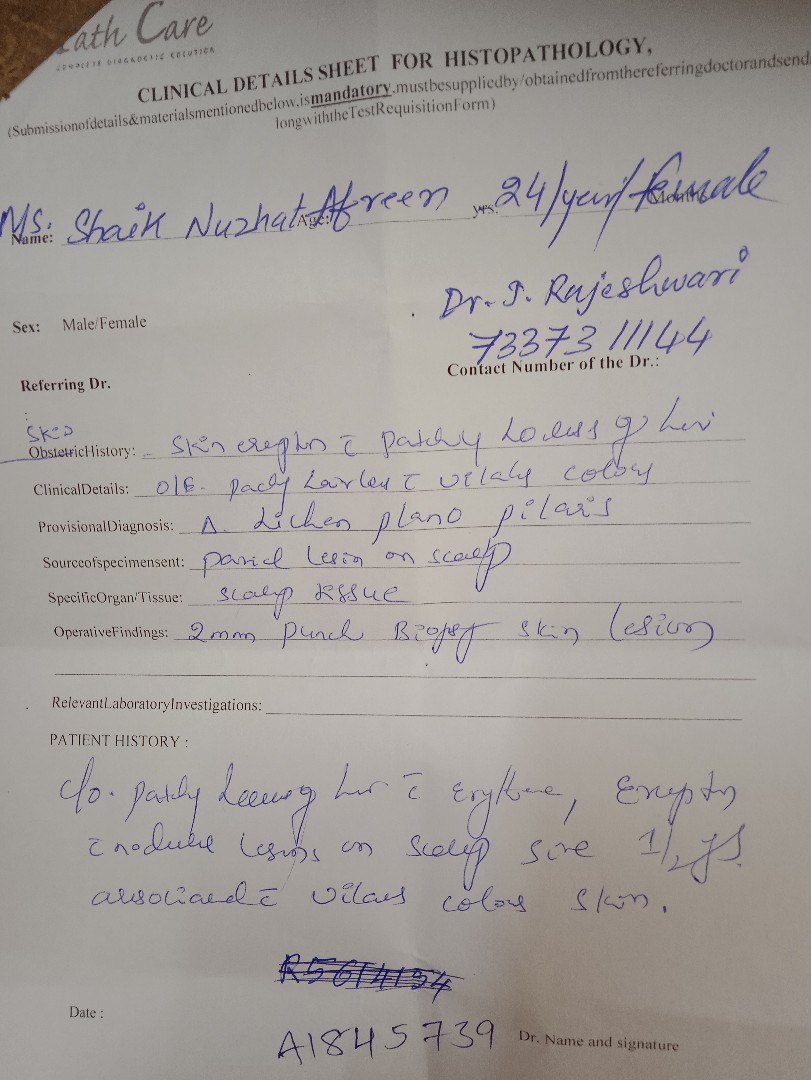 ath Care
COMPLETE DIAGNOSTIC SOLUTION
CLINICAL DETAILS SHEET FOR HISTOPATHOLOGY,
(Submissionofdetails&materialsmentionedbelow,ismandatory,mustbesuppliedby/obtainedfromthereferringdoctorandsend
longwiththeTestRequisitionForm)
Name: Ms: Shaik Nuzhat Afreen Age: yrs. 24/year/female Months
Dr. J. Rajeshwari
Sex: Male/Female
7337311144
Contact Number of the Dr.:
Referring Dr.
:
Skin
ObstetricHistory: Skin c̄ patchy
ClinicalDetails: O/E. c̄ colous
ProvisionalDiagnosis: Δ. Lichen plano pilaris
Sourceofspecimensent: lesion on scalp
SpecificOrgan/Tissue: scalp tissue
OperativeFindings: 2mm punch Biopsy skin lesion
RelevantLaboratoryInvestigations:
PATIENT HISTORY :
c/o. patchy c̄
c̄ lesions on scalp size 1½
c̄ colous skin.
R5614154
Date :
A1845739
Dr. Name and signature